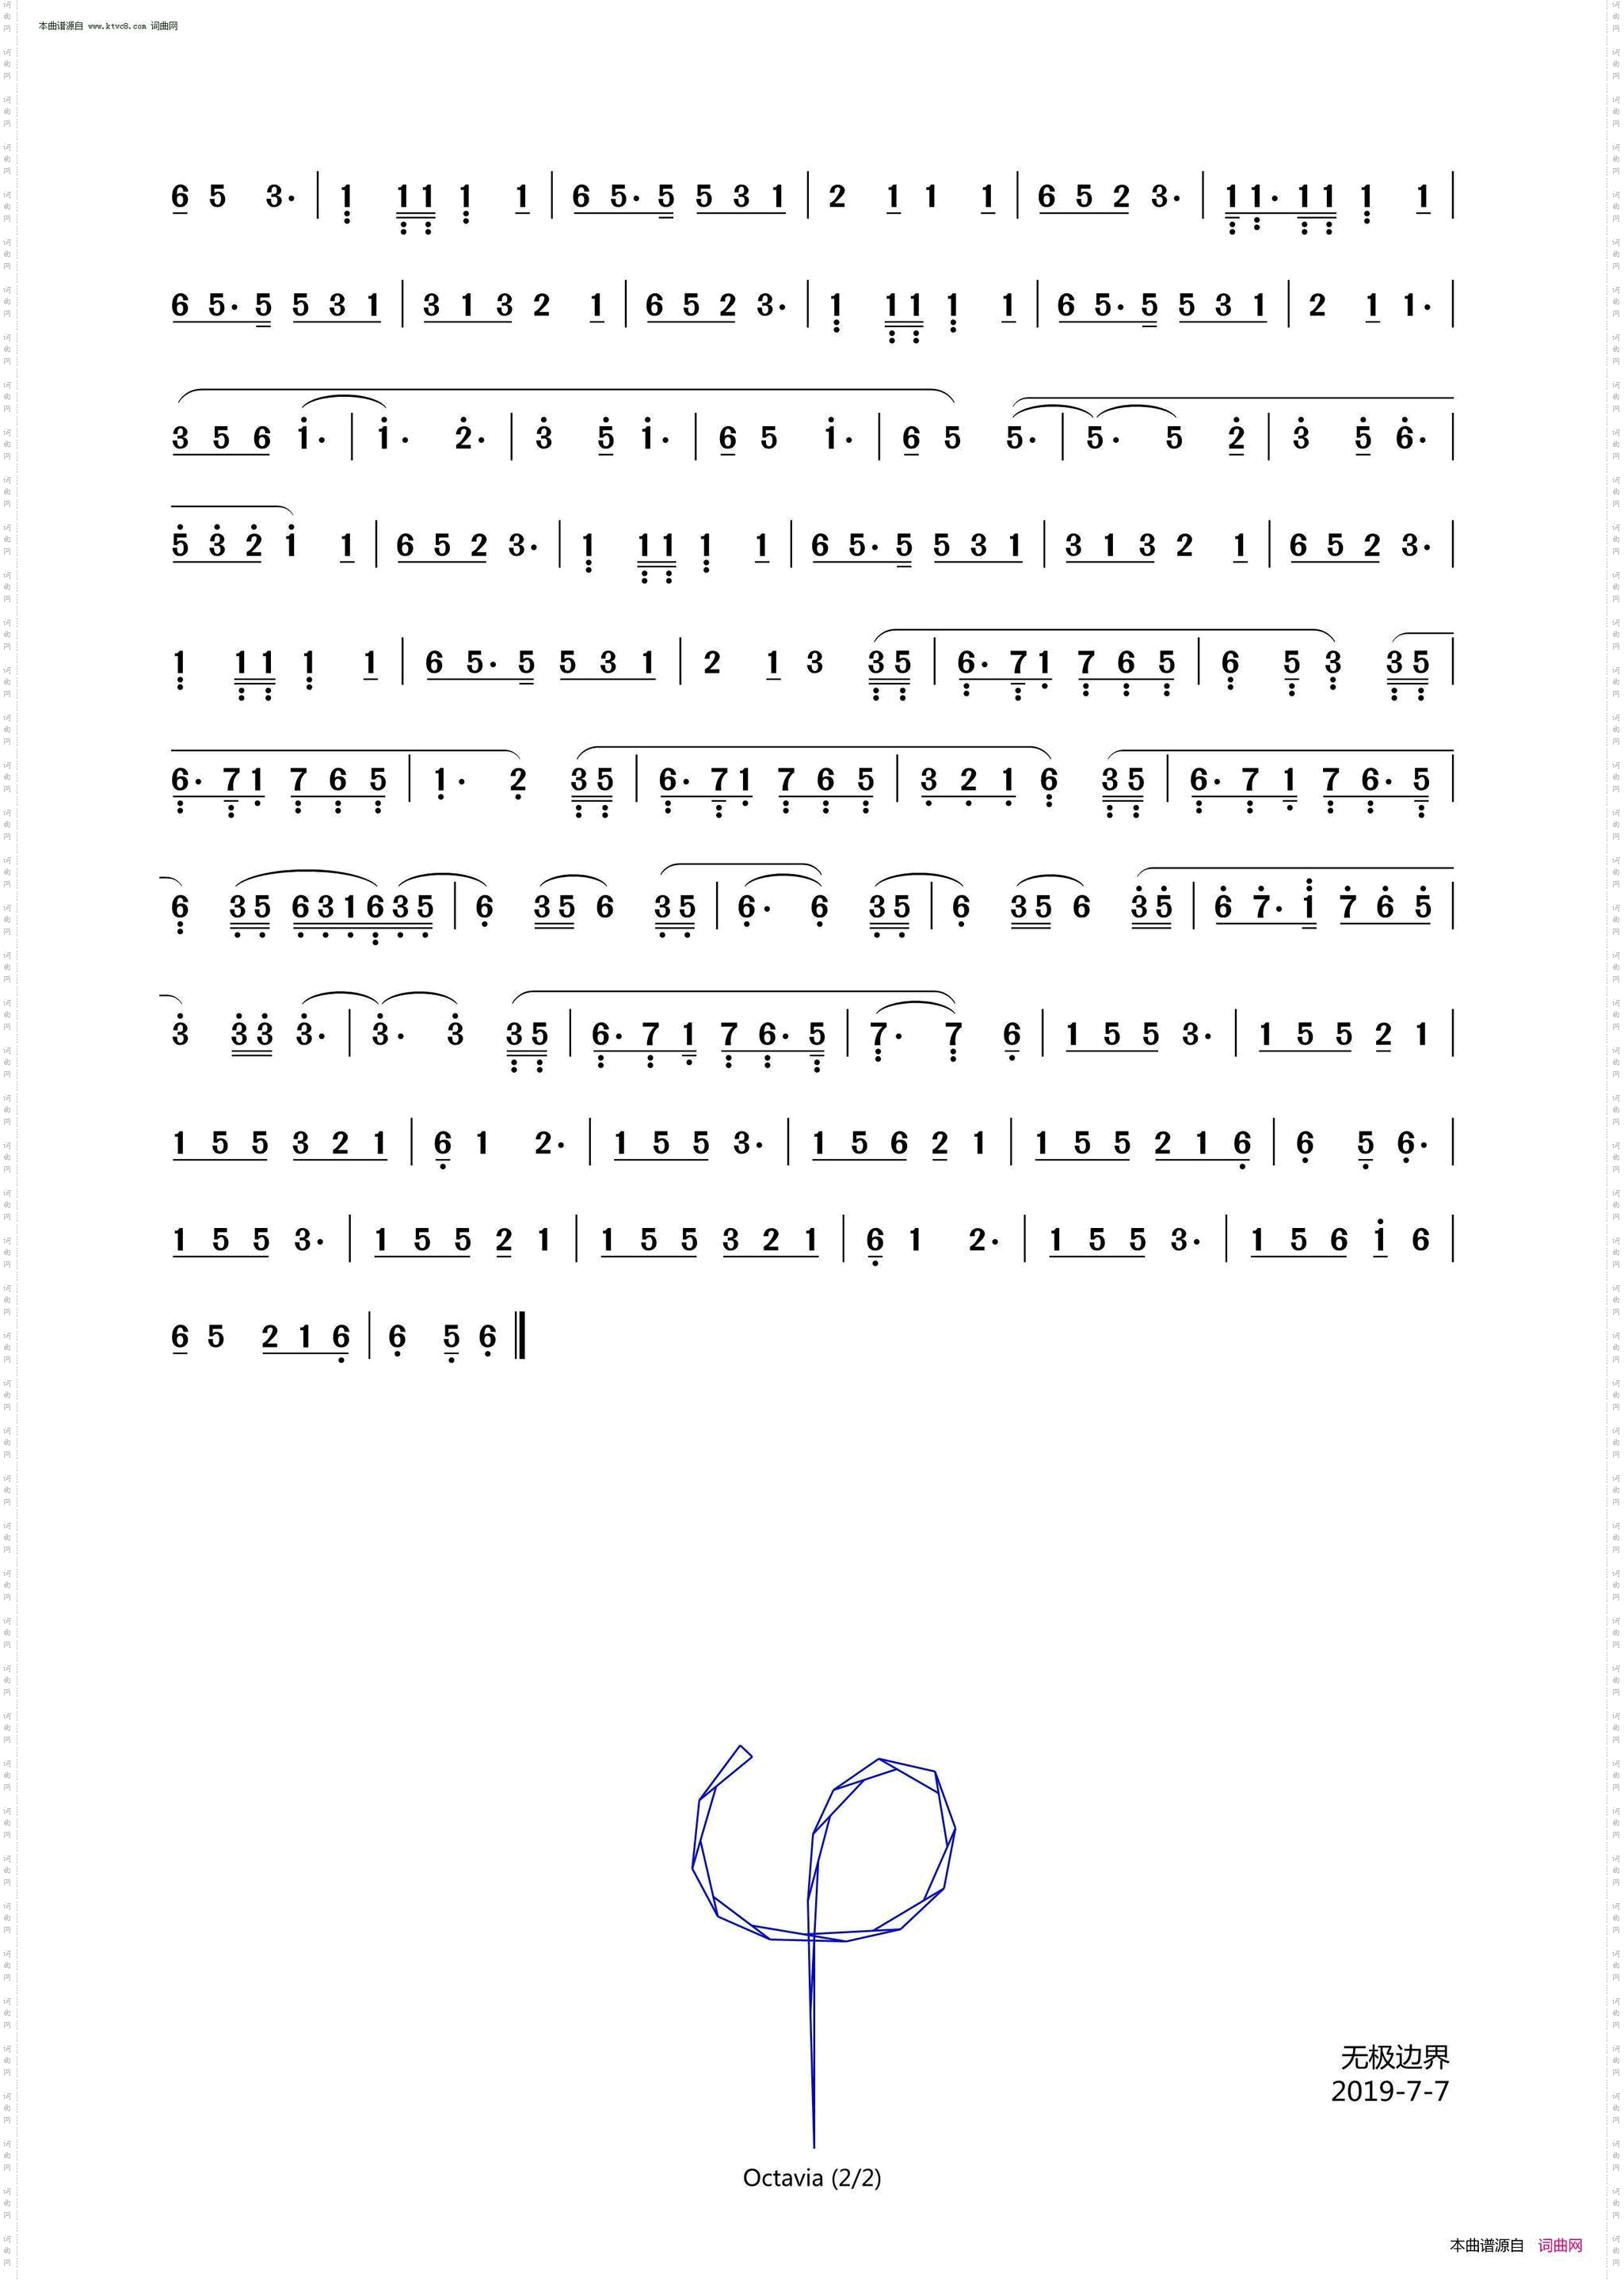 本曲谱源自 www.ktvc8.com 词曲网
6 5 3· | 1 1 1 1 1 | 6 5· 5 5 3 1 | 2 1 1 1 | 6 5 2 3· | 1 1· 1 1 1 1 |
6 5· 5 5 3 1 | 3 1 3 2 1 | 6 5 2 3· | 1 1 1 1 1 | 6 5· 5 5 3 1 | 2 1 1· |
3 5 6 1· | 1· 2· | 3 5 1· | 6 5 1· | 6 5 5· | 5· 5 2 | 3 5 6· |
5 3 2 1 1 | 6 5 2 3· | 1 1 1 1 1 | 6 5· 5 5 3 1 | 3 1 3 2 1 | 6 5 2 3· |
1 1 1 1 1 | 6 5· 5 5 3 1 | 2 1 3 3 5 | 6· 7 1 7 6 5 | 6 5 3 3 5 |
6· 7 1 7 6 5 | 1· 2 3 5 | 6· 7 1 7 6 5 | 3 2 1 6 3 5 | 6· 7 1 7 6· 5 |
6 3 5 6 3 1 6 3 5 | 6 3 5 6 3 5 | 6· 6 3 5 | 6 3 5 6 3 5 | 6 7· 1 7 6 5 |
3 3 3 3· | 3· 3 3 5 | 6· 7 1 7 6· 5 | 7· 7 6 | 1 5 5 3· | 1 5 5 2 1 |
1 5 5 3 2 1 | 6 1 2· | 1 5 5 3· | 1 5 6 2 1 | 1 5 5 2 1 6 | 6 5 6· |
1 5 5 3· | 1 5 5 2 1 | 1 5 5 3 2 1 | 6 1 2· | 1 5 5 3· | 1 5 6 1 6 |
6 5 2 1 6 | 6 5 6
无极边界
2019-7-7
Octavia (2/2)
本曲谱源自 词曲网